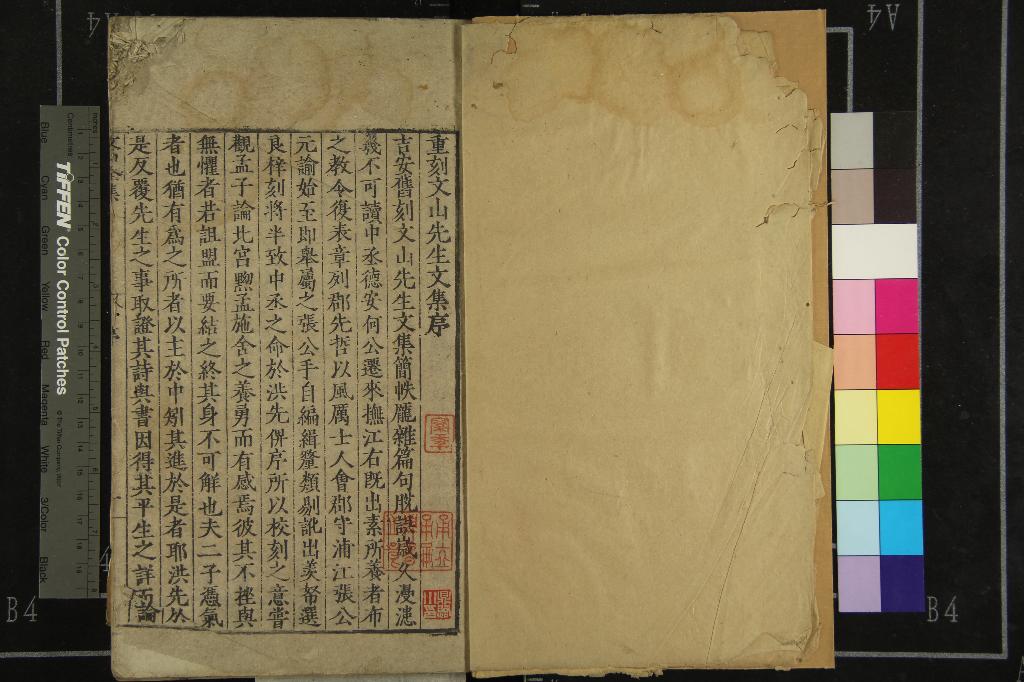 重刻文山先生文集序
吉安舊刻文山先生文集簡帙龎雜篇句脫誤歲久漫漶
幾不可讀中丞德安何公遷來撫江右旣出素所養者布
之教令復表章列郡先哲以風厲士人會郡守浦江張公
元諭始至即舉屬之張公手自編緝釐類剔訛出羨帑選
良梓刻將半致中丞之命於洪先俾序所以校刻之意嘗
觀孟子論北宮黝孟施舍之養勇而有感焉彼其不挫與
無懼者若詛盟而要結之終其身不可解也夫二子憑氣
者也猶有爲之所者以主於中矧其進於是者耶洪先於
是反覆先生之事取證其詩與書因得其平生之詳而論
TIFFEN Color Control Patches
© The Tiffen Company, 2007
Centimetres
Inches
Blue Cyan Green Yellow Red Magenta White 3/Color Black
A4
A4
B4
B4